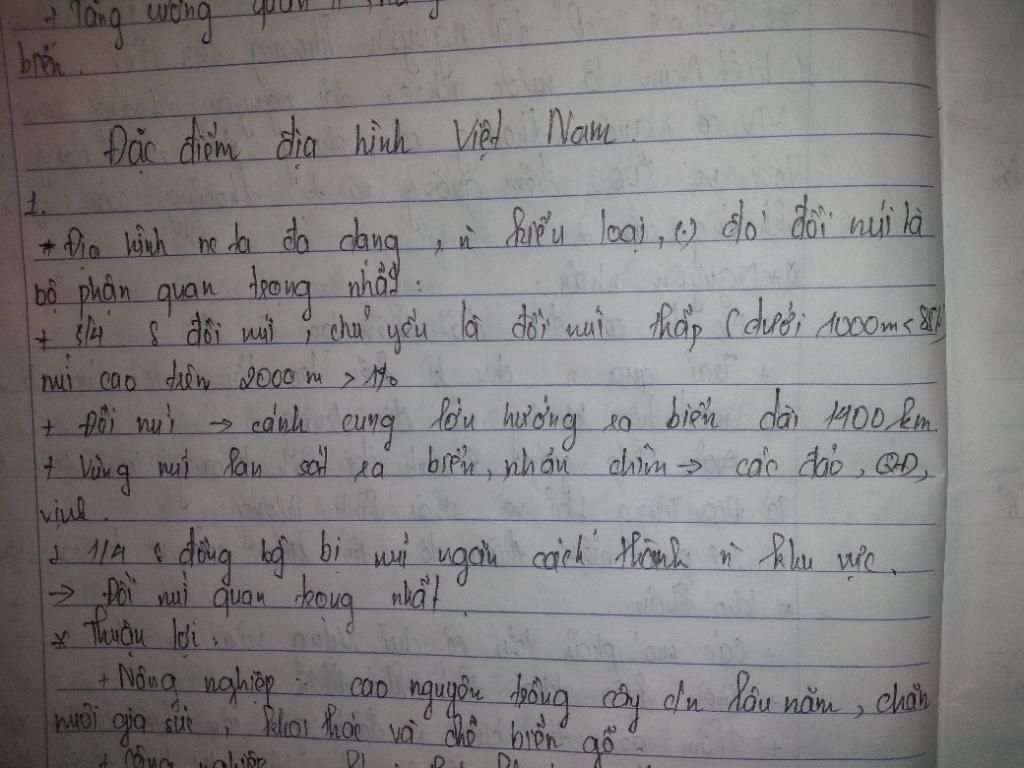 + Tăng cường quan
biển.
Đặc điểm địa hình Việt Nam.
1.
* Địa hình nc ta đa dạng, n̄ kiểu loại, (.) đó đồi núi là
bộ phận quan trọng nhất:
+ 3/4 S đồi núi, chủ yếu là đồi núi thấp (dưới 1000m < 85%)
núi cao trên 2000m > 1%
+ Đồi núi → cánh cung lớn hướng ra biển dài 1400 km
+ Vùng núi lan sát ra biển, nhấn chìm → các đảo, QĐ,
vịnh.
+ 1/4 S đồng bằng bị núi ngăn cách thành n̄ khu vực.
→ Đồi núi quan trọng nhất
* Thuận lợi.
+ Nông nghiệp: cao nguyên trồng cây c/n lâu năm, chăn
nuôi gia súc, khai thác và chế biến gỗ.
+ Công nghiệp